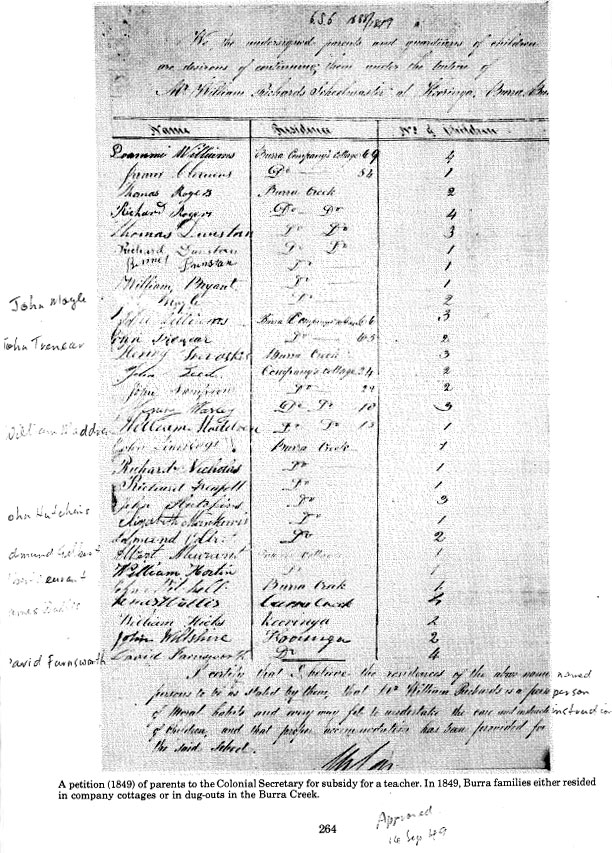 656 1849
We the undersigned parents and guardians of children
are desirous of continuing them under the tuition of
Mr William Richards Schoolmaster at Kooringa, Burra Bur
Name Residence No of Children
Williams Burra Company's Cottage 69 4
James Clemens Do 54 1
Thomas Rogers Burra Creek 2
Richard Rogers Do Do 4
Thomas Dunstan Do Do 3
Richard Dunstan Do Do 1
Dunstan Do 1
William Bryant Do 1
John Moyle
Moyle Do 2
John Williams Burra Company's 66 3
John Trenear
John Trenear Do 65 2
Henry Burra Creek 3
John Company's Cottage 24 2
John Simpson Do 24 2
Do Do 18 3
William Waddren
William Do Do 13 1
John Burra Creek 1
Richard Nicholls Do 1
Richard Grenfell Do 1
John Hutchins
John Hutchins Do 3
Elizabeth Do 1
Edmund Gilbert
Edmund Do 2
Albert 1
William Hortin 1
Burra Creek
James
James Creek 4
William Hicks Kooringa 2
John Wiltshire Kooringa 2
David Farnsworth
David Farnsworth Do 4
I certify that I believe the residences of the above name named
persons to be as stated by them, that Mr William Richards is a pers person
of Moral habits and very fit to undertake the care and instruct instruction
of Children, and that proper accommodation has been provided for
the said School.
A petition (1849) of parents to the Colonial Secretary for subsidy for a teacher. In 1849, Burra families either resided
in company cottages or in dug-outs in the Burra Creek.
264
Approved
14 Sep 49